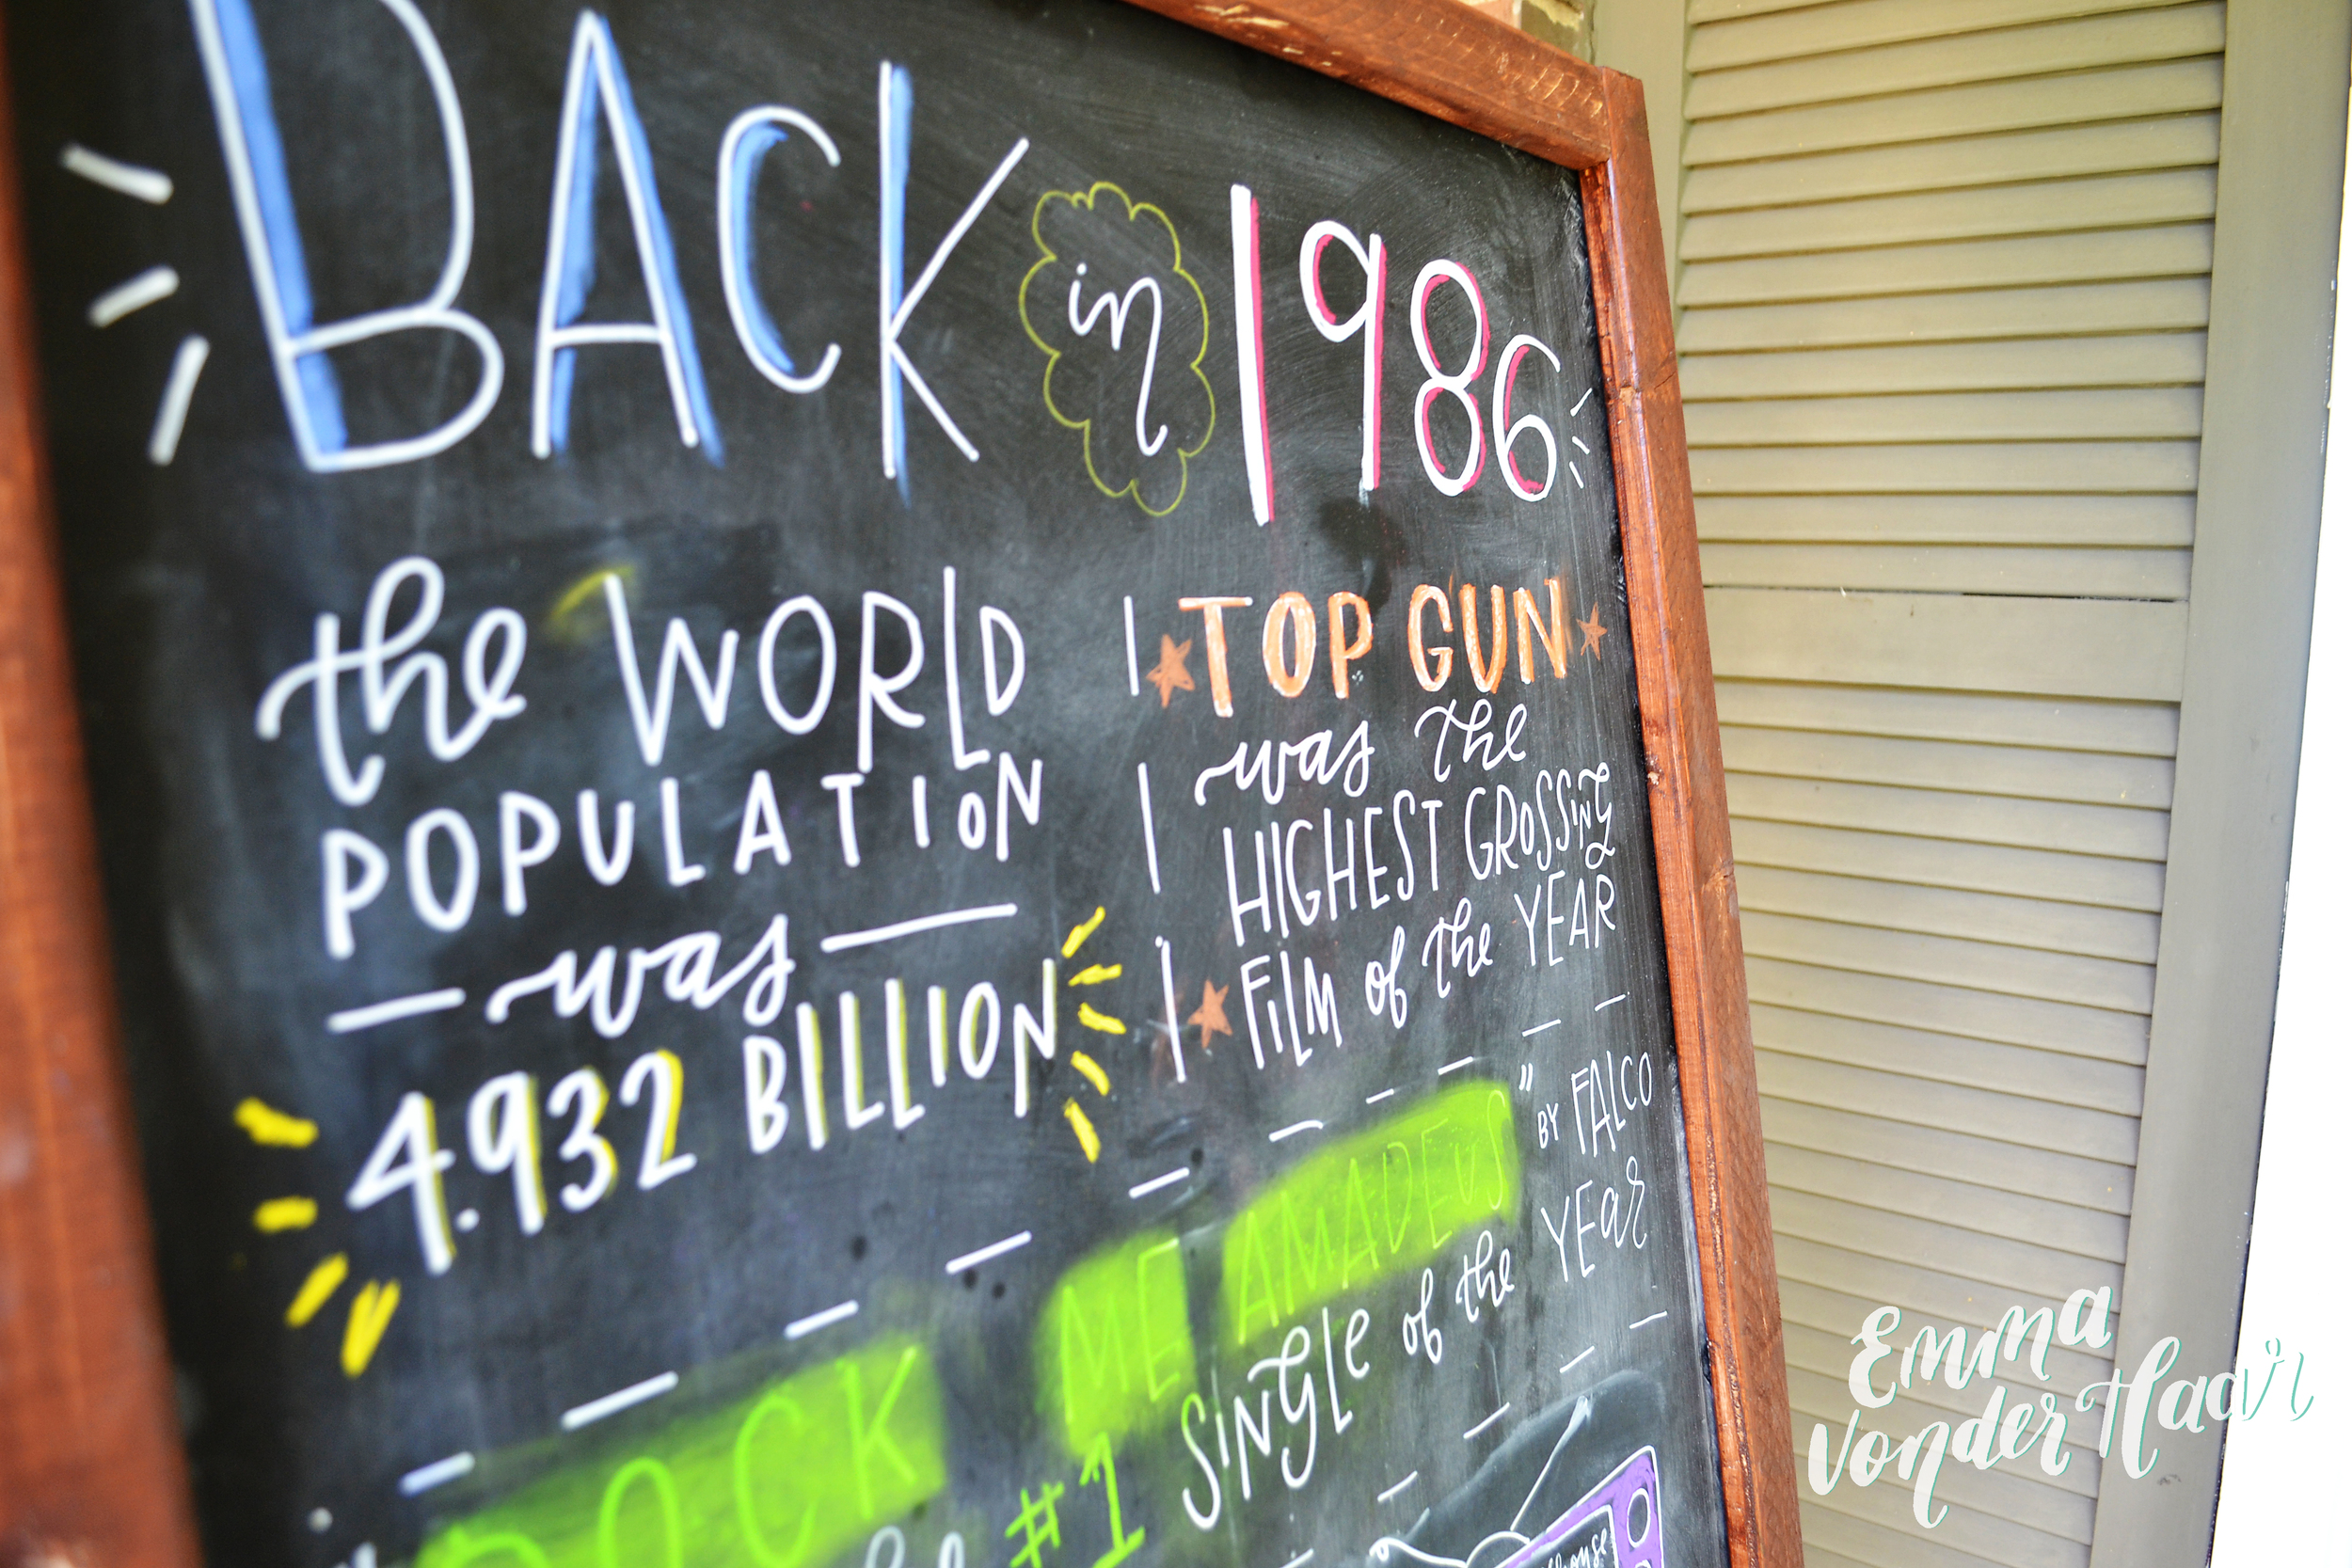 BACK in 1986
the WORLD
POPULATION
was
4.932 BILLION
TOP GUN
was the
HIGHEST GROSSING
FILM of the YEAR
ROCK ME AMADEUS" BY FALCO
#1 SINGLE of the YEar
Emma
Vonder Haar